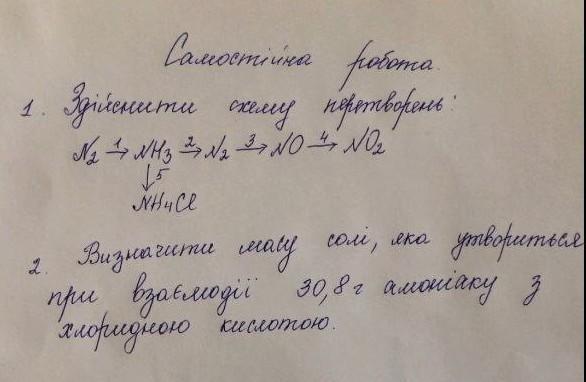 Самостійна робота.
1. Здійснити схему перетворень:
N₂ →1 NH₃ →2 N₂ →3 NO →4 NO₂
↓5
NH₄Cl
2. Визначити масу солі, яка утвориться
при взаємодії 30,8 г амоніаку з
хлоридною кислотою.